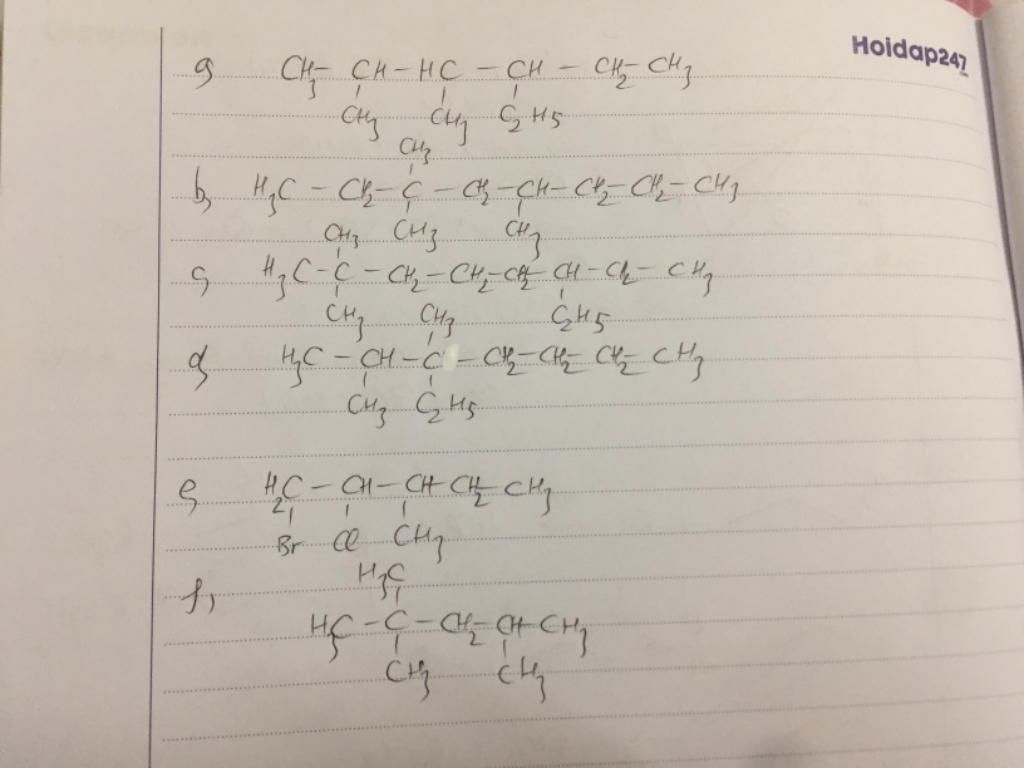 Hoidap247
a, CH3 - CH - HC - CH - CH2 - CH3
CH3 CH3 C2H5
CH3
b, H3C - CH2 - C - CH2 - CH - CH2 - CH2 - CH3
CH3 CH3
CH3
c, H3C - C - CH2 - CH2 - CH2 - CH - CH2 - CH3
CH3 C2H5
CH3
d, H3C - CH - C - CH2 - CH2 - CH2 - CH3
CH3 C2H5
e, H2C - CH - CH - CH2 - CH3
Br Cl CH3
H3C
f, H3C - C - CH2 - CH - CH3
CH3 CH3